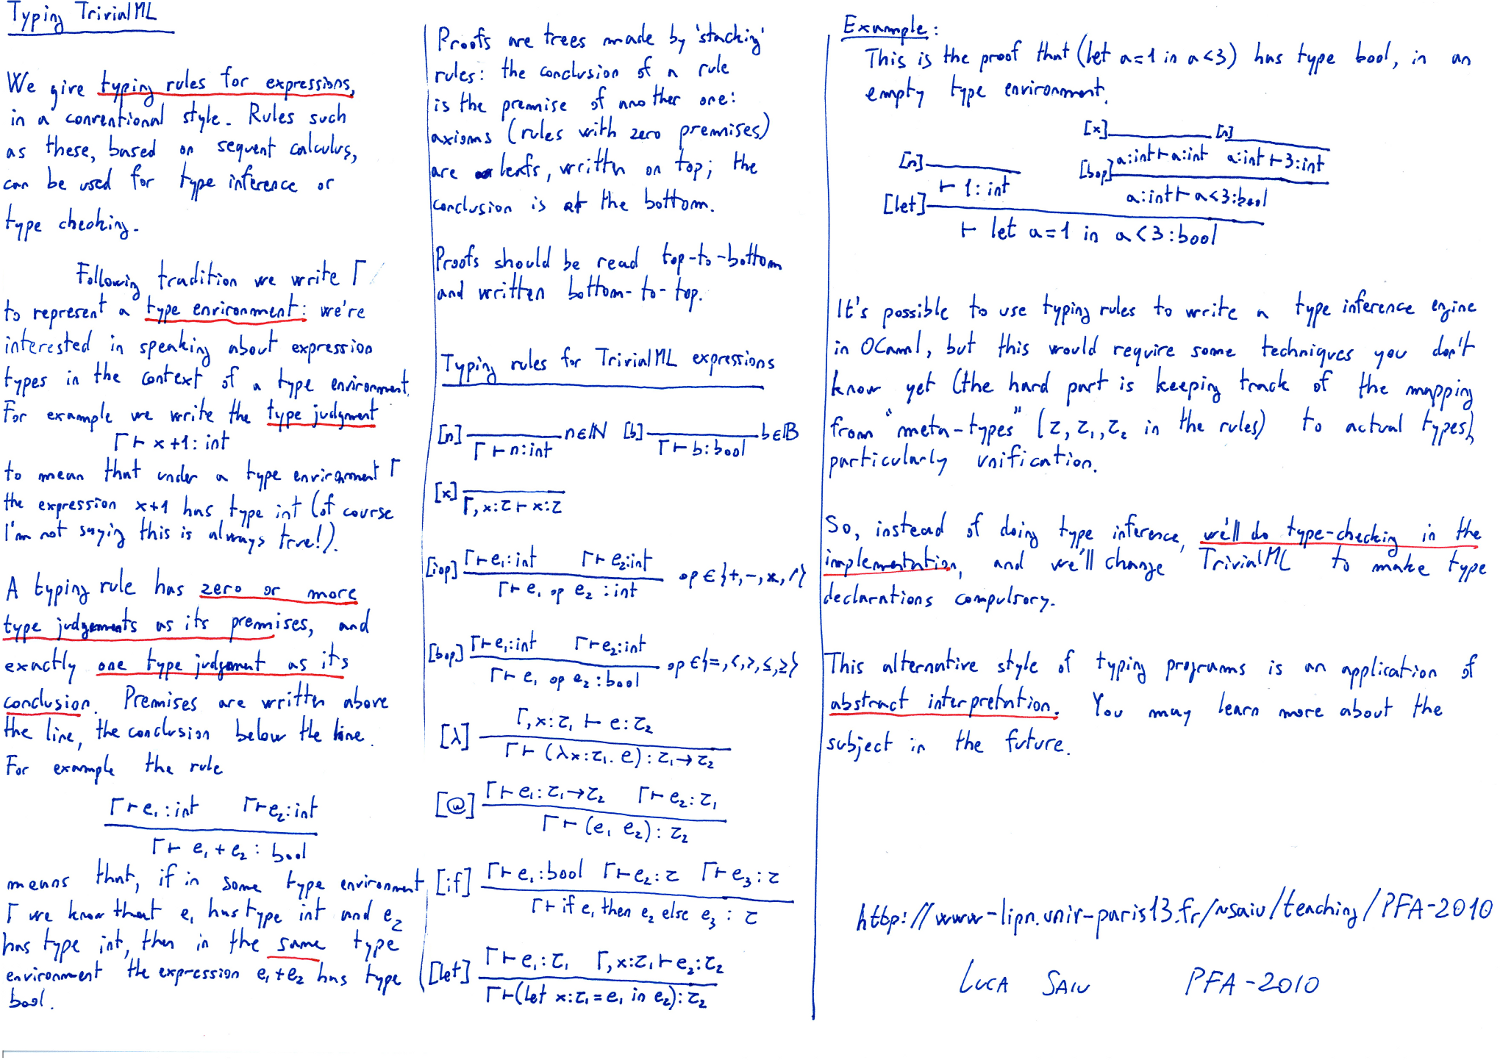 Typing TrivialML
We give typing rules for expressions,
in a conventional style. Rules such
as these, based on sequent calculus,
can be used for type inference or
type checking.
Following tradition we write Γ
to represent a type environment: we're
interested in speaking about expression
types in the context of a type environment.
For example we write the type judgment
Γ ⊢ x+1: int
to mean that under a type environment Γ
the expression x+1 has type int (of course
I'm not saying this is always true!).
A typing rule has zero or more
type judgements as its premises, and
exactly one type judgment as its
conclusion. Premises are written above
the line, the conclusion below the line.
For example the rule
Γ ⊢ e₁ : int Γ ⊢ e₂ : int
Γ ⊢ e₁ + e₂ : bool
means that, if in some type environment
Γ we know that e₁ has type int and e₂
has type int, then in the same type
environment the expression e₁+e₂ has type
bool.
Proofs are trees made by 'stacking'
rules: the conclusion of a rule
is the premise of another one:
axioms (rules with zero premises)
are leafs, written on top; the
conclusion is at the bottom.
Proofs should be read top-to-bottom
and written bottom-to-top.
Typing rules for TrivialML expressions
[n] n∈ℕ [b] b∈𝔹
Γ ⊢ n:int Γ ⊢ b:bool
[x]
Γ, x:τ ⊢ x:τ
Γ ⊢ e₁:int Γ ⊢ e₂:int
[iop] op ∈ {+, -, *, /}
Γ ⊢ e₁ op e₂ : int
Γ ⊢ e₁:int Γ ⊢ e₂:int
[bop] op ∈ {=, <, >, ≤, ≥}
Γ ⊢ e₁ op e₂ : bool
Γ, x:τ₁ ⊢ e:τ₂
[λ]
Γ ⊢ (λx:τ₁. e) : τ₁→τ₂
Γ ⊢ e₁: τ₁→τ₂ Γ ⊢ e₂: τ₁
[@]
Γ ⊢ (e₁ e₂) : τ₂
Γ ⊢ e₁:bool Γ ⊢ e₂:τ Γ ⊢ e₃:τ
[if]
Γ ⊢ if e₁ then e₂ else e₃ : τ
Γ ⊢ e₁:τ₁ Γ, x:τ₁ ⊢ e₂:τ₂
[let]
Γ ⊢ (let x:τ₁ = e₁ in e₂): τ₂
Example:
This is the proof that (let a=1 in a<3) has type bool, in an
empty type environment.
[x] [n]
[n] [bop] a:int ⊢ a:int a:int ⊢ 3:int
⊢ 1: int a:int ⊢ a<3:bool
[let]
⊢ let a=1 in a<3:bool
It's possible to use typing rules to write a type inference engine
in OCaml, but this would require some techniques you don't
know yet (the hard part is keeping track of the mapping
from "meta-types" (τ, τ₁, τ₂ in the rules) to actual types),
particularly unification.
So, instead of doing type inference, we'll do type-checking in the
implementation, and we'll change TrivialML to make type
declarations compulsory.
This alternative style of typing programs is an application of
abstract interpretation. You may learn more about the
subject in the future.
http://www-lipn.univ-paris13.fr/~saiu/teaching/PFA-2010
LUCA SAIU PFA-2010